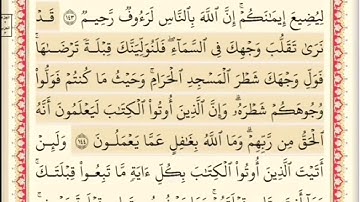 لِيُضِيعَ إِيمَٰنَكُمْ ۚ إِنَّ ٱللَّهَ بِٱلنَّاسِ لَرَءُوفٌ رَّحِيمٌ ١٤٣ قَدْ
نَرَىٰ تَقَلُّبَ وَجْهِكَ فِى ٱلسَّمَآءِ ۖ فَلَنُوَلِّيَنَّكَ قِبْلَةً تَرْضَىٰهَا ۚ
فَوَلِّ وَجْهَكَ شَطْرَ ٱلْمَسْجِدِ ٱلْحَرَامِ ۚ وَحَيْثُ مَا كُنتُمْ فَوَلُّوا۟
وُجُوهَكُمْ شَطْرَهُۥ ۗ وَإِنَّ ٱلَّذِينَ أُوتُوا۟ ٱلْكِتَٰبَ لَيَعْلَمُونَ أَنَّهُ
ٱلْحَقُّ مِن رَّبِّهِمْ ۗ وَمَا ٱللَّهُ بِغَٰفِلٍ عَمَّا يَعْمَلُونَ ١٤٤ وَلَئِنْ
أَتَيْتَ ٱلَّذِينَ أُوتُوا۟ ٱلْكِتَٰبَ بِكُلِّ ءَايَةٍ مَّا تَبِعُوا۟ قِبْلَتَكَ ۚ